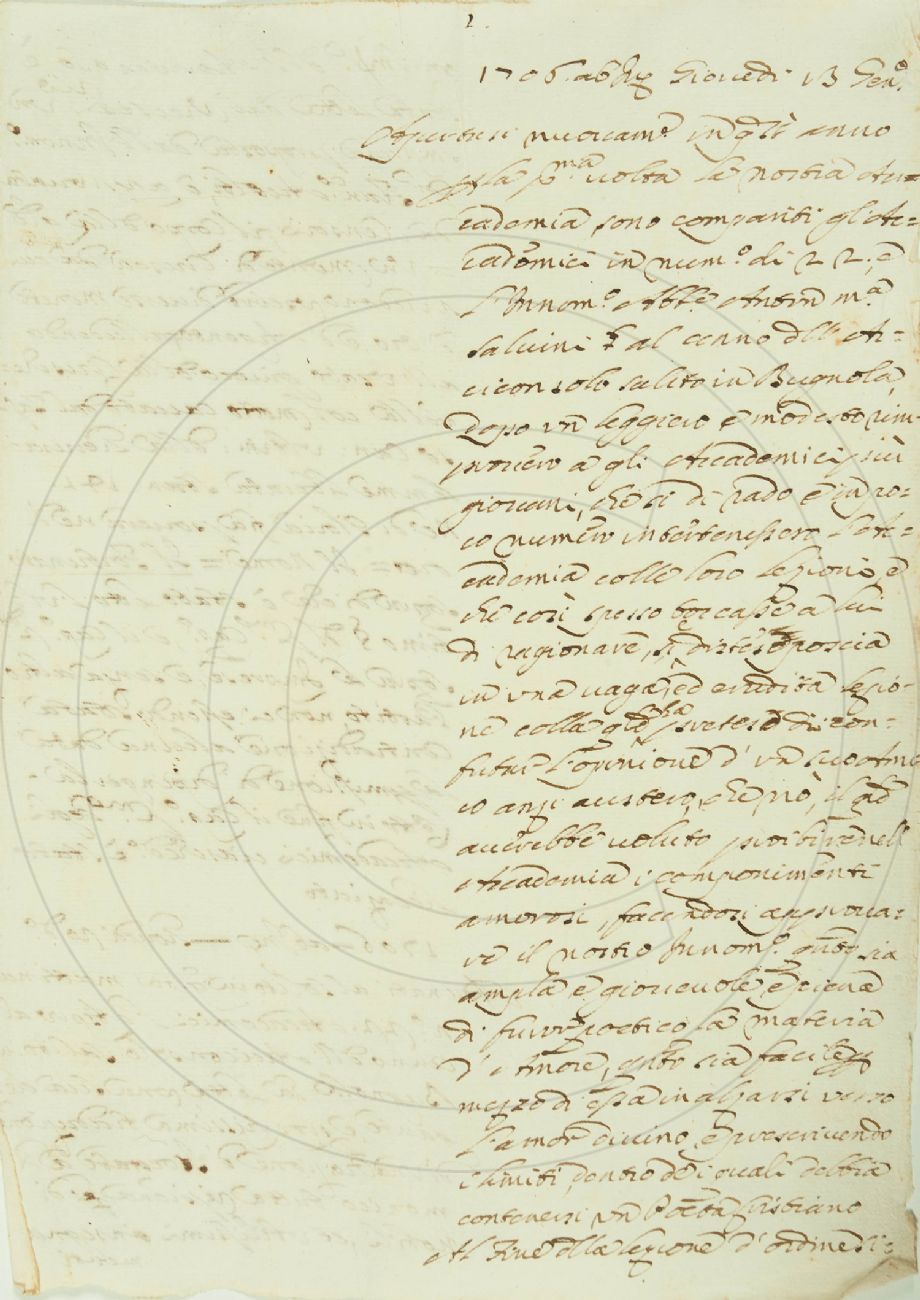 1.
1706. ab Inc. Giovedì 13 Gen.º
Apertasi nuovam.e in q.sto anno
p la p.ma volta la nostra Ac=
cademia, sono compariti gl'Ac=
cademici in num.º di 22; e
l'Innom.º Abb.e Anton M.a
Salvini al cenno dell'Ar=
ciconsolo salito in Bugnola,
Dopo un leggiero e modesto rim=
provero a gli Accademici più
giovani, che sì di rado e in po=
co numero intertenessero l'Ac=
cademia colle loro lezioni, e
che così spesso toccasse a lui
di ragionare, si distese poscia
in una vaga, ed erudita lezio=
ne colla q.le pretese di con=
futar l'opinione d'un suo Ami
co anzi austero, che nò, il q.le
averebbe voluto proibire nell'
Accademia i componimenti
amorosi, facendosi a provar=
re il nostro Innom.º q.nto sia
ampla e giovevole, e piena
di furor poetico la materia
d'Amore, q.nto sia facile p
mezzo di essa inalzarsi verso
l'amor divino, e prescrivendo
i limiti, dentro de i quali debbia
contenersi un Poeta Cristiano
Al fine della lezione d'ordine di=